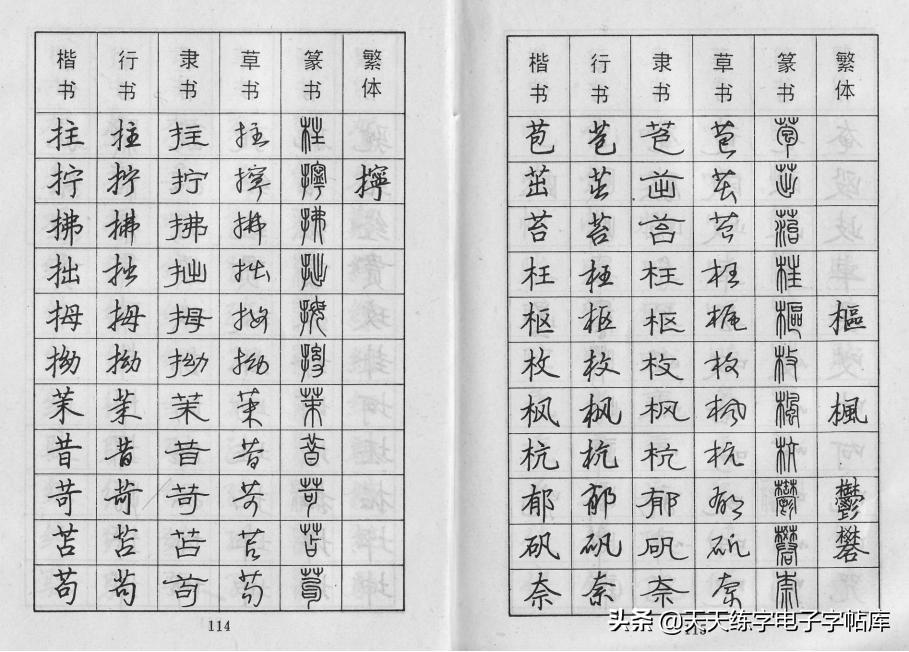 楷书 行书 隶书 草书 篆书 繁体
拄 拄 拄 拄 拄
拧 拧 拧 拧 擰 擰
拂 拂 拂 拂 拂
拙 拙 拙 拙 拙
拇 拇 拇 拇 拇
拗 拗 拗 拗 拗
茉 茉 茉 茉 茉
昔 昔 昔 昔 昔
苛 苛 苛 苛 苛
苫 苫 苫 苫 苫
苟 苟 苟 苟 苟
114
楷书 行书 隶书 草书 篆书 繁体
苞 苞 苞 苞 苞
茁 茁 茁 茁 茁
苔 苔 苔 苔 苔
枉 枉 枉 枉 枉
枢 枢 枢 枢 樞 樞
枚 枚 枚 枚 枚
枫 枫 枫 枫 楓 楓
杭 杭 杭 杭 杭
郁 郁 郁 郁 鬱 鬱
矾 矾 矾 矾 礬 礬
奈 奈 奈 奈 奈
115
头条 @天天练字电子字帖库